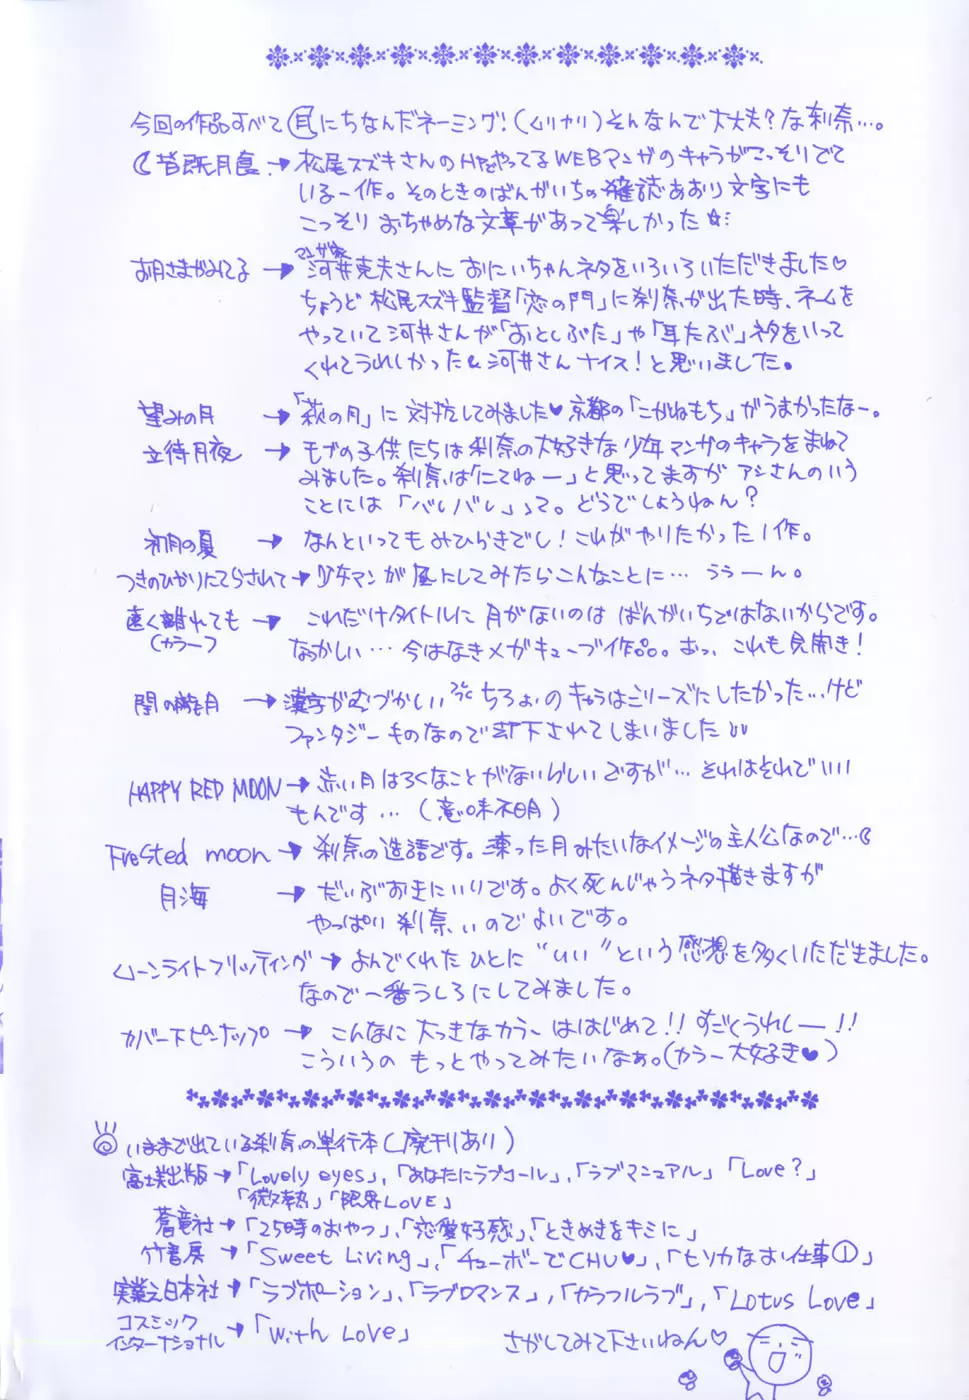 今回の作品すべて月にちなんだネーミング!(ムリヤリ)そんなんで大丈夫?な刹奈…。
皆既月食→松尾スズキさんのHPでやってるWEBマンガのキャラがこっそりでて
いる一作。そのときのばんがいちの雑誌あおり文字にも
こっそりおちゃめな文章があって楽しかった☆
お月さまがみてる→マンガ家河井克夫さんにおにいちゃんネタをいろいろいただきました♡
ちょうど松尾スズキ監督「恋の門」に刹奈が出た時、ネームを
やっていて河井さんが「おとしぶた」や「耳たぶ」ネタをいって
くれてうれしかった 河井さんナイス!と思いました。
望みの月→「萩の月」に対抗してみました♥京都の「こがねもち」がうまかったなー。
立待月夜→モブの子供たちは刹奈の大好きな少年マンガのキャラをまねて
みました。刹奈は「にてねー」と思ってますがアシさんのいう
ことには「バレバレ」って。どうでしょうねん?
初月の夏→なんといってもみひらきでし!これがやりたかった1作。
つきのひかりにてらされて→少女マンガ風にしてみたらこんなことに…ううーん。
遠く離れても(カラー)→これだけタイトルに月がないのはばんがいちではないからです。
なつかしい…今はなきメガキューブ作品。おっ、これも見開き!
闇の月→漢字がむづかしい ちろょいのキャラはシリーズにしたかった…けど
ファンタジーものなので却下されてしまいました
HAPPY RED MOON→赤い月はろくなことがないらしいですが…それはそれでいい
もんです…(意味不明)
Frested moon→刹奈の造語です。凍った月みたいなイメージの主人公なので…
月海→だいぶおきにいりです。よく死んじゃうネタ描きますが
やっぱり刹奈、いのでよいです。
ムーンライトフリッティング→よんでくれたひとに"いい"という感想を多くいただきました。
なので一番うしろにしてみました。
カバー下ピンナップ→こんなに大っきなカラーははじめて!!すごくうれしー!!
こういうのもっとやってみたいなぁ。(カラー大好き♥)
いままで出ている刹奈の単行本(廃刊あり)
富士美出版→「Lovely eyes」、「あなたにラブコール」、「ラブマニュアル」「Love?」
「微熱」「限界LOVE」
蒼竜社→「25時のおやつ」、「恋愛好感」、「ときめきをキミに」
竹書房→「Sweet Living」、「チューボーでCHU♥」、「ヒソカなお仕事①」
実業之日本社→「ラブポーション」、「ラブロマンス」、「カラフルラブ」、「Lotus Love」
コスミックインターナショナル→「With Love」
さがしてみて下さいねん♡